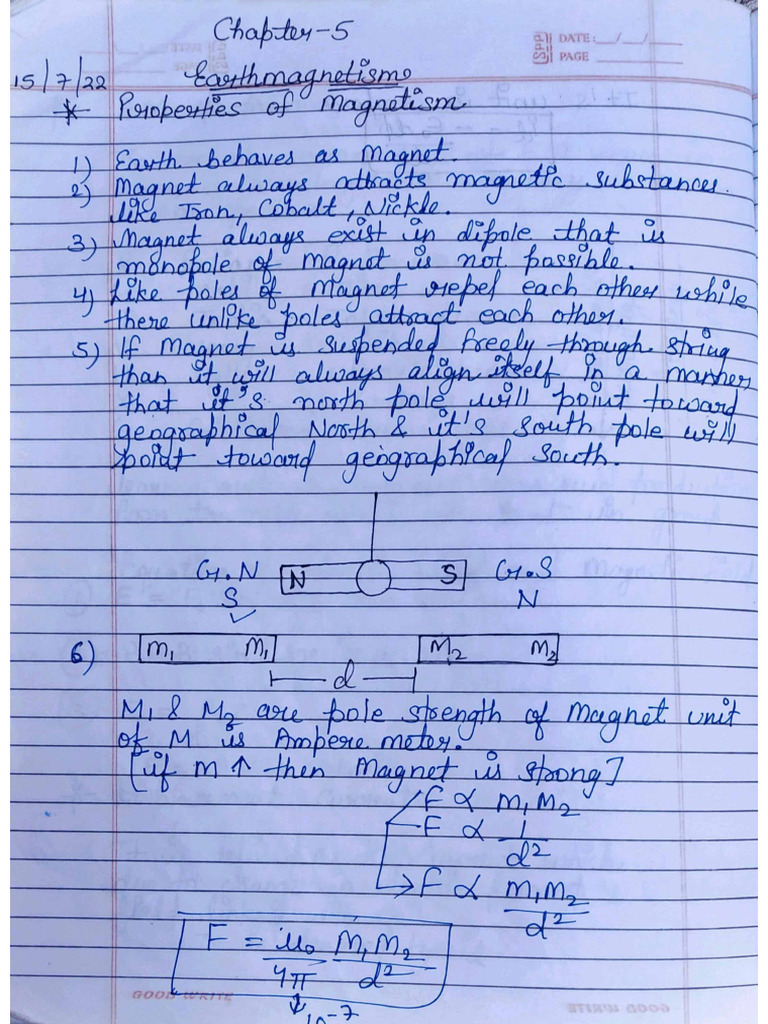 Chapter-5
Spp DATE: __/__/__
PAGE
15/7/22 Earthmagnetism
* Properties of Magnetism
1) Earth behaves as Magnet.
2) Magnet always attracts magnetic substances
like Iron, Cobalt, Nickle.
3) Magnet always exist in dipole that is
monopole of magnet is not possible.
4) Like poles of Magnet repel each other while
there unlike poles attract each other.
5) If Magnet is suspended freely through string
than it will always align itself in a manner
that it's north pole will point toward
geographical North & it's South pole will
point toward geographical South.
G.N N S G.S
S N
6) m₁ M₁ M₂ M₂
d
M₁ & M₂ are pole strength of Magnet unit
of M is Ampere meter.
[if M ↑ then Magnet is strong]
F ∝ M₁M₂
F ∝ 1/d²
F ∝ M₁M₂/d²
F = μ₀/4π M₁M₂/d²
GOOD WRITE
10⁻⁷